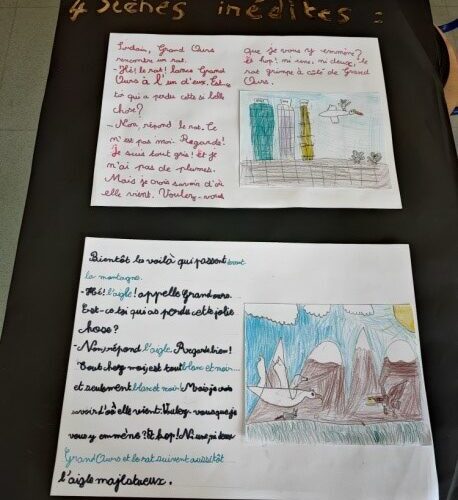 4 Scènes inédites :
Soudain, Grand Ours
rencontre un rat.
- Hé! le rat! lance Grand
Ours à l'un d'eux. Est-ce
toi qui a perdu cette si belle
chose?
- Non, répond le rat. Ce
n'est pas moi. Regarde!
Je suis tout gris! Et je
n'ai pas de plumes.
Mais je crois savoir d'où
elle vient. Voulez-vous
que je vous y emmène?
Et hop! ni une, ni deux, le
rat grimpe à côté de Grand
Ours.
Bientôt le voilà qui passent devant
la montagne.
- Hé! l'aigle! appelle Grand ours.
Est-ce toi qui as perdu cette jolie
chose?
- Non, répond l'aigle. Regarde bien!
Tout chez moi est tout blanc et noir...
et seulement blanc et noir! Mais je crois
savoir d'où elle vient. Voulez-vous que je
vous y emmène? Et hop! Ni une ni deux
Grand Ours et le rat suivent aussitôt
l'aigle majestueux.